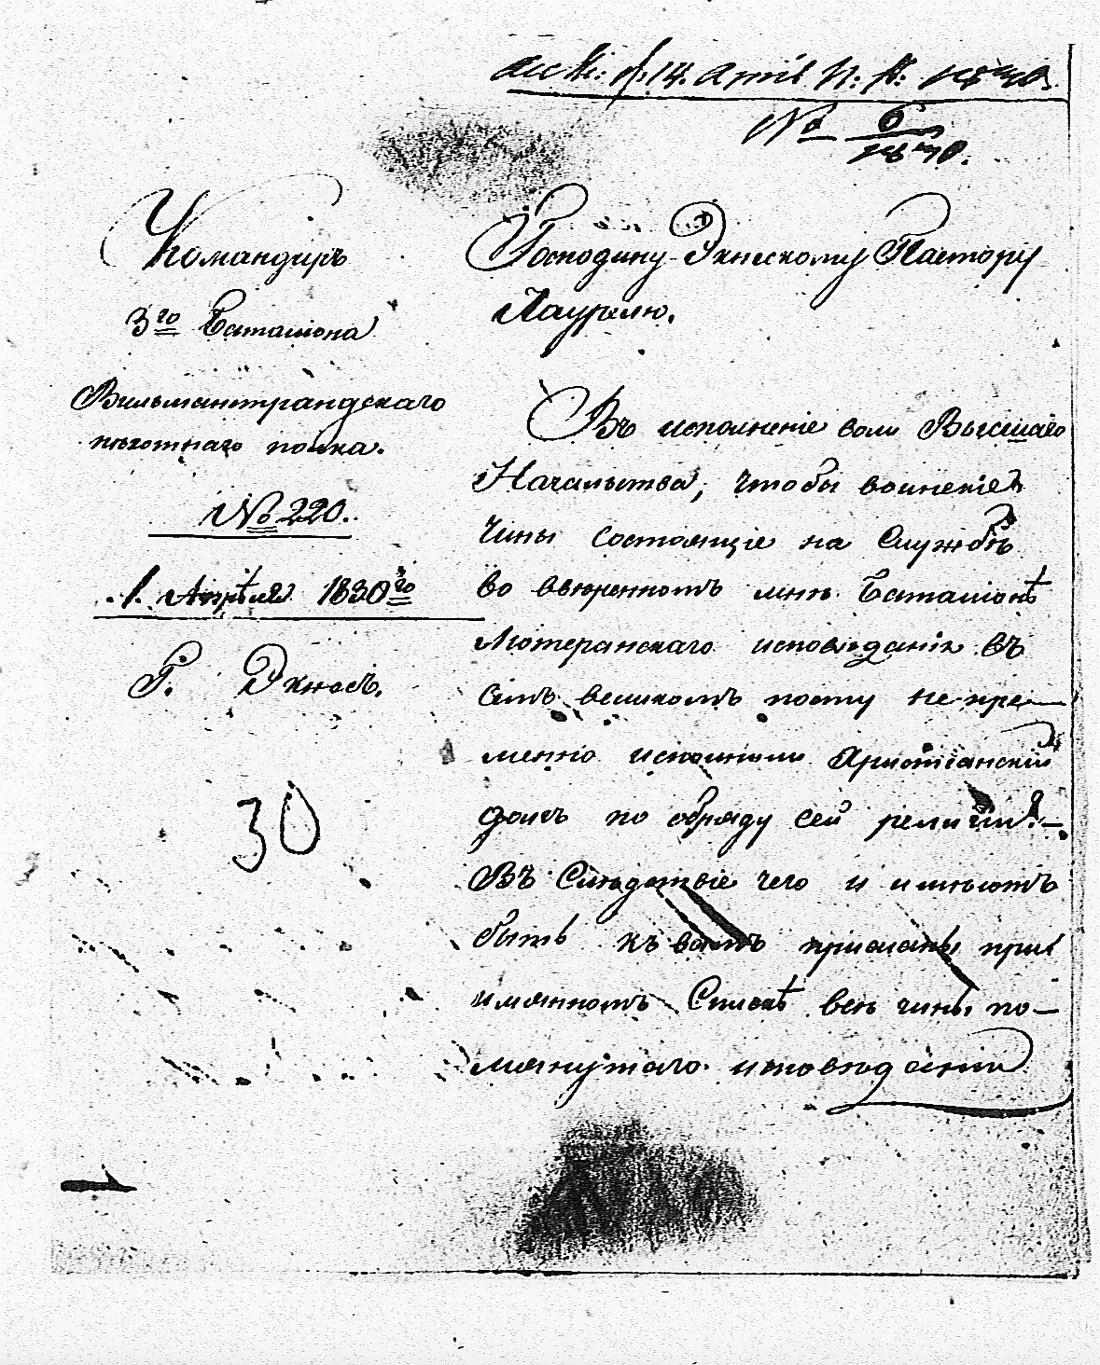 d. 14. April
№ 6
Командиръ
3го Баталiона
Вильманстрандскаго
пѣхотнаго полка.
№ 220.
1. Апрѣля 1830го
Г. Экнесъ.
30
Господину Экнескому Пастору
Лаурелю.
Въ исполненiе воли Высшаго
Начальства, чтобы воинскiе
чины состоящiе на Службѣ
во ввѣренномъ мнѣ Баталiонѣ
Лютеранскаго исповѣданiя въ
семъ великомъ посту непре—
менно исполнили Христiанскiй
долгъ по обряду сей религiи. —
Въ Слѣдствiе чего и имѣютъ
быть къ вамъ присланы при
имянномъ Спискѣ всѣ чины по—
мянутаго исповѣданiя